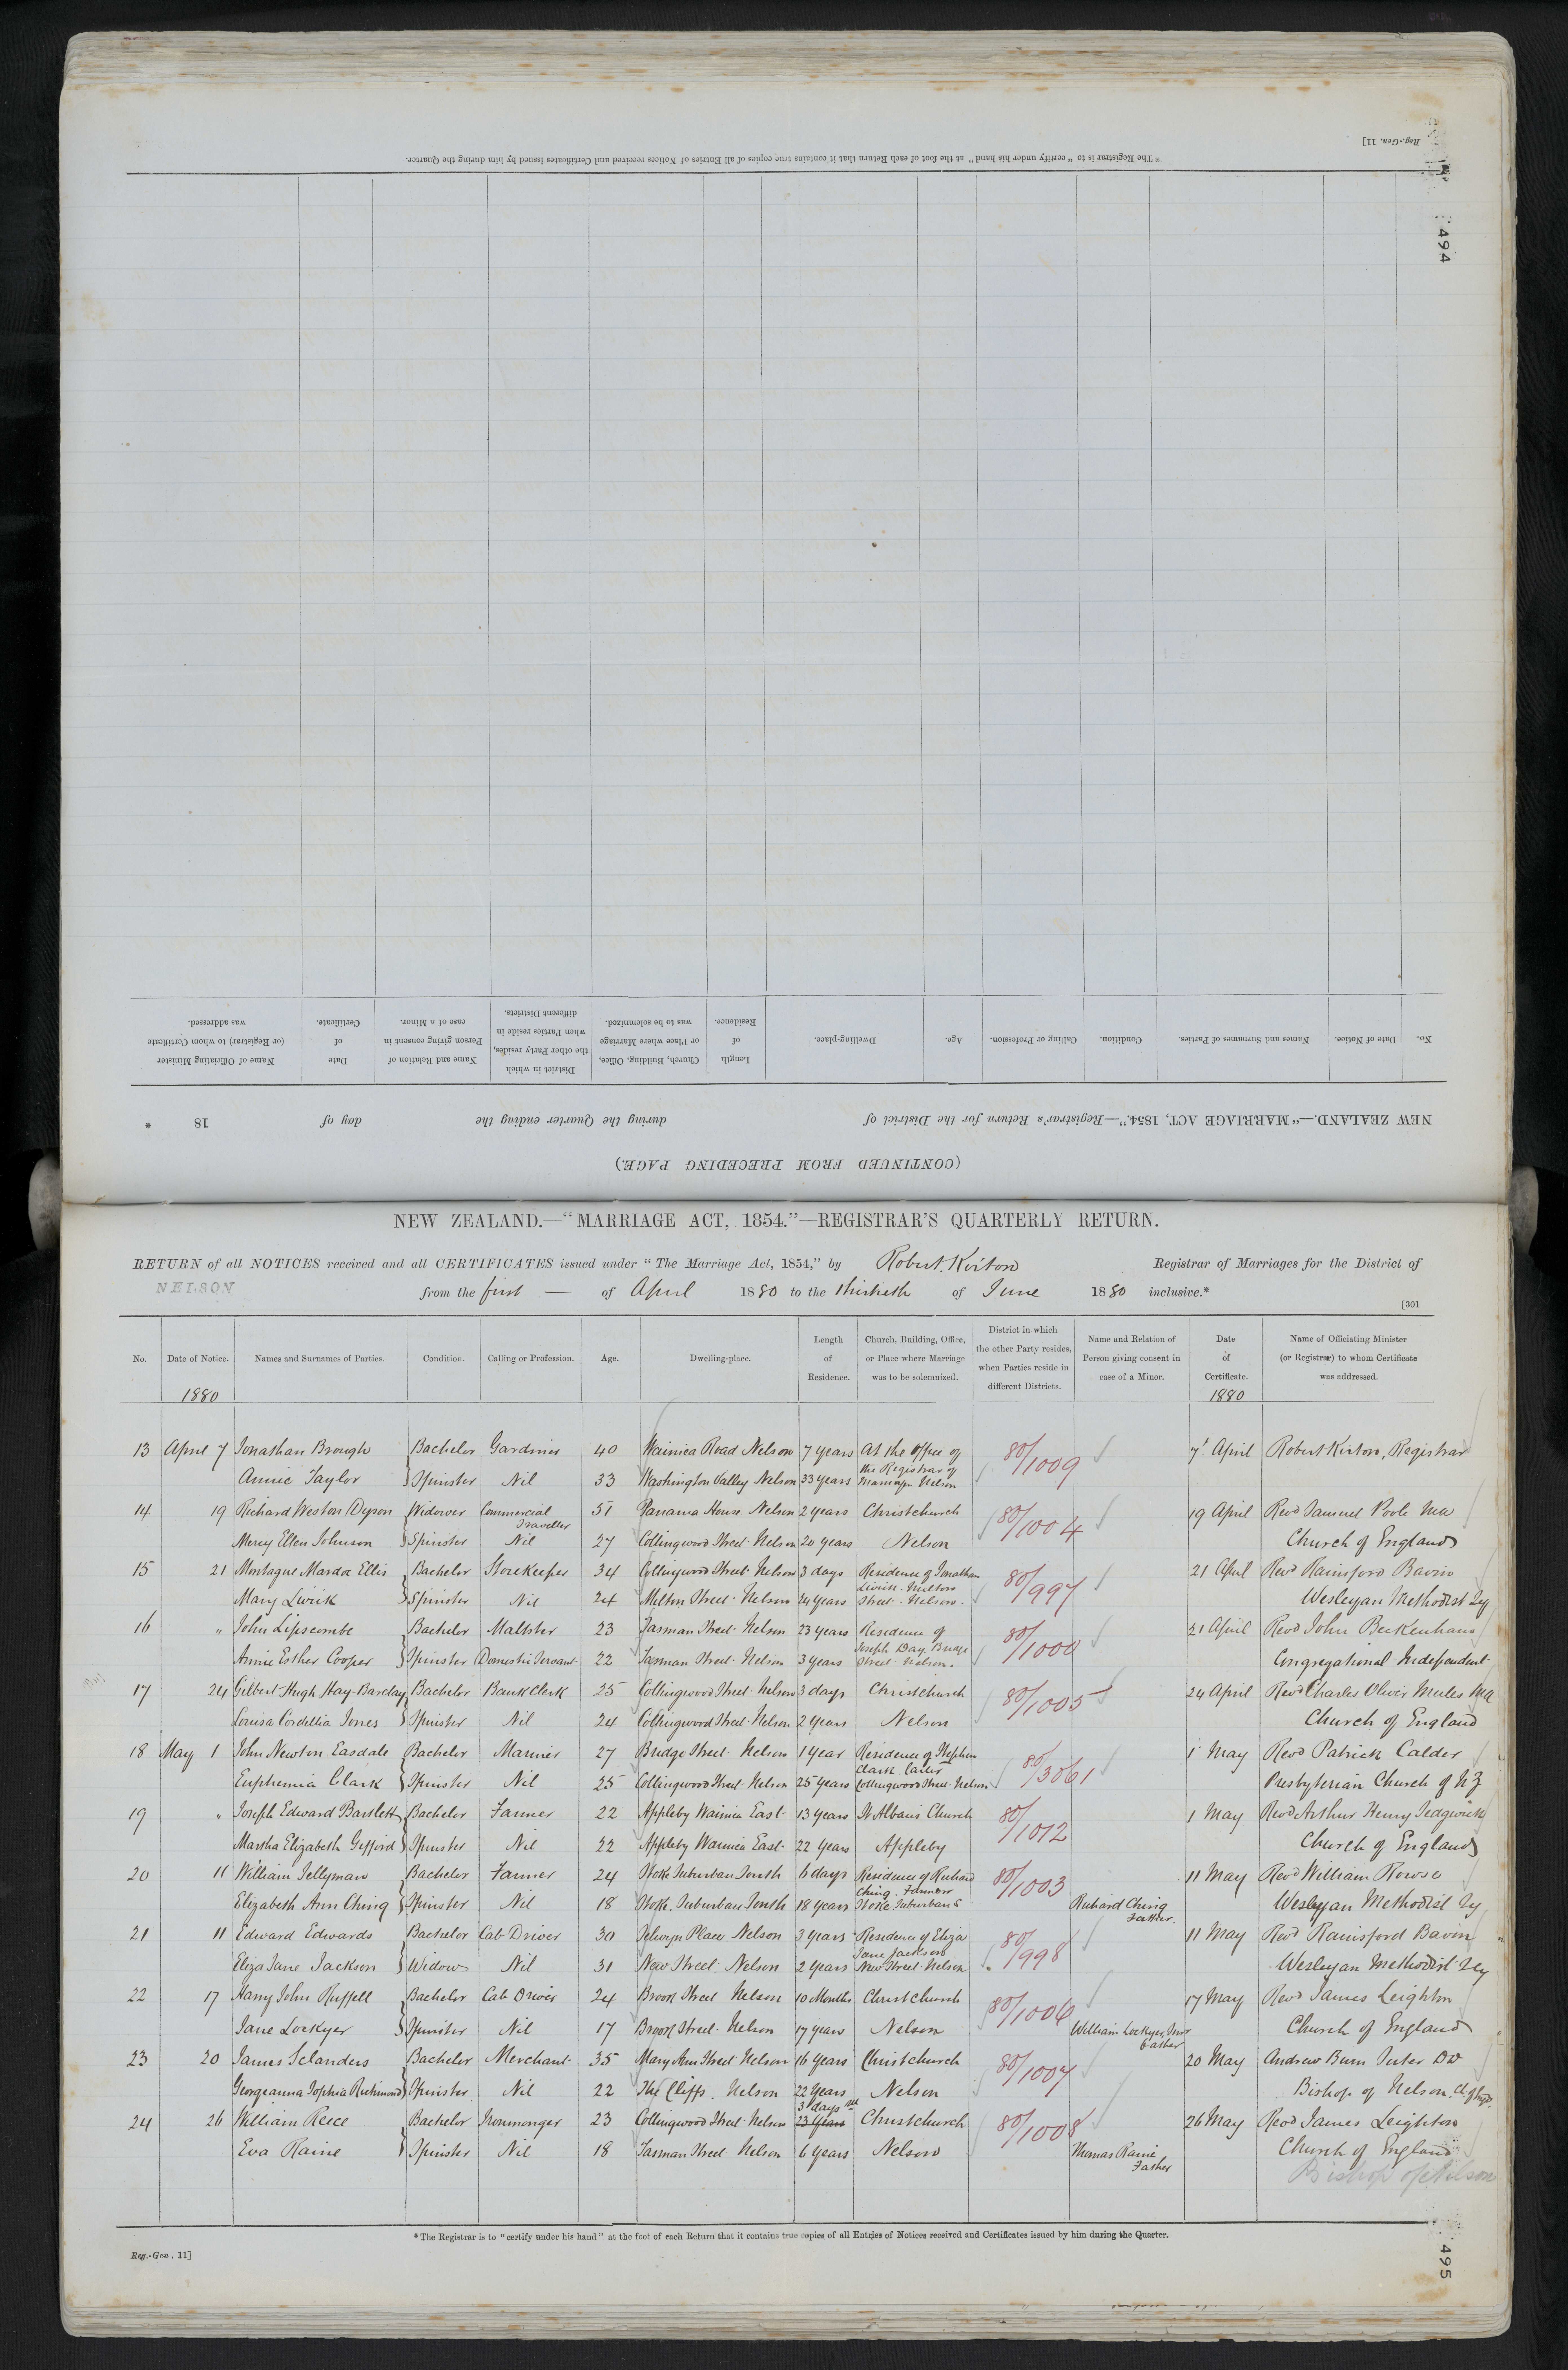 * The Registrar is to "certify under his hand" at the foot of each Return that it contains true copies of all Entries of Notices received and Certificates issued by him during the Quarter.
Reg.-Gen. 11]
494
(CONTINUED FROM PRECEDING PAGE.)
NEW ZEALAND.—"MARRIAGE ACT, 1854."—Registrar's Return for the District of during the Quarter ending the day of 18 *
No. Date of Notice. Names and Surnames of Parties. Condition. Calling or Profession. Age. Dwelling-place. Length of Residence. Church, Building, Office, or Place where Marriage was to be solemnized. District in which the other Party resides, when Parties reside in different Districts. Name and Relation of Person giving consent in case of a Minor. Date of Certificate. Name of Officiating Minister (or Registrar) to whom Certificate was addressed.
NEW ZEALAND.—"MARRIAGE ACT, 1854."—REGISTRAR'S QUARTERLY RETURN.
RETURN of all NOTICES received and all CERTIFICATES issued under "The Marriage Act, 1854," by Robert Kirton Registrar of Marriages for the District of
NELSON from the first — of April 1880 to the thirtieth of June 1880 inclusive.*
[301
No. Date of Notice. Names and Surnames of Parties. Condition. Calling or Profession. Age. Dwelling-place. Length of Residence. Church, Building, Office, or Place where Marriage was to be solemnized. District in which the other Party resides, when Parties reside in different Districts. Name and Relation of Person giving consent in case of a Minor. Date of Certificate. Name of Officiating Minister (or Registrar) to whom Certificate was addressed.
1880 1880
13 April 7 Jonathan Brough Bachelor Gardener 40 Waimea Road Nelson 7 years At the office of 80/1009 7 April Robert Kirton, Registrar
Annie Taylor Spinster Nil 33 Washington Valley Nelson 33 years the Registrar of Marriages Nelson
14 19 Richard Weston Dyson Widower Commercial Traveller 51 Panama House Nelson 2 years Christchurch 80/1004 19 April Revd Samuel Poole MA
Mercy Ellen Johnson Spinster Nil 27 Collingwood Street Nelson 20 years Nelson Church of England
15 21 Montague Mardon Ellis Bachelor Storekeeper 34 Collingwood Street Nelson 3 days Residence of Jonathan 80/997 21 April Revd Rainsford Bavin
Mary Lwick Spinster Nil 24 Milton Street Nelson 24 years Lwick Milton Street Nelson. Wesleyan Methodist Sy
16 " John Lipscombe Bachelor Maltster 23 Tasman Street Nelson 23 years Residence of 80/1000 21 April Revd John Beckenham
Annie Esther Cooper Spinster Domestic Servant 22 Tasman Street Nelson 3 years Joseph Day Bridge Street Nelson. Congregational Independent
17 24 Gilbert Hugh Hay-Barclay Bachelor Bank Clerk 25 Collingwood Street Nelson 3 days Christchurch 80/1005 24 April Revd Charles Oliver Mules MA
Louisa Cordellia Jones Spinster Nil 24 Collingwood Street Nelson 2 years Nelson Church of England
18 May 1 John Newton Easdale Bachelor Mariner 27 Bridge Street Nelson 1 year Residence of Stephen 80/3061 1 May Revd Patrick Calder
Euphemia Clark Spinster Nil 25 Collingwood Street Nelson 25 years Clark Carter Collingwood Street Nelson Presbyterian Church of NZ
19 " Joseph Edward Bartlett Bachelor Farmer 22 Appleby Waimea East 13 years St Albans Church 80/1012 1 May Revd Arthur Henry Sedgwick
Martha Elizabeth Gifford Spinster Nil 22 Appleby Waimea East 22 years Appleby Church of England
20 11 William Jellyman Bachelor Farmer 24 Stoke Suburban South 6 days Residence of Richard 80/1003 11 May Revd William Rowse
Elizabeth Ann Ching Spinster Nil 18 Stoke Suburban South 18 years Ching Farmer Stoke Suburban S Richard Ching Father. Wesleyan Methodist Sy
21 11 Edward Edwards Bachelor Cab Driver 30 Selwyn Place Nelson 3 years Residence of Eliza 80/998 11 May Revd Rainsford Bavin
Eliza Jane Jackson Widow Nil 31 New Street Nelson 2 years Jane Jackson New Street Nelson Wesleyan Methodist Sy
22 17 Harry John Ruffell Bachelor Cab Driver 24 Brook Street Nelson 10 Months Christchurch 80/1006 17 May Revd James Leighton
Jane Lockyer Spinster Nil 17 Brook Street Nelson 17 years Nelson William Lockyer, Junr Father Church of England
23 20 James Sclanders Bachelor Merchant 35 Mary Ann Street Nelson 16 years Christchurch 80/1007 20 May Andrew Burn Suter DD
Georgeanna Sophia Richmond Spinster Nil 22 The Cliffs. Nelson 22 years Nelson Bishop of Nelson
24 26 William Reece Bachelor Ironmonger 23 Collingwood Street Nelson 3 days 23 years Christchurch 80/1008 26 May Revd James Leighton
Eva Raine Spinster Nil 18 Tasman Street Nelson 6 years Nelson Thomas Raine Father Church of England
Bishop of Nelson
* The Registrar is to "certify under his hand" at the foot of each Return that it contains true copies of all Entries of Notices received and Certificates issued by him during the Quarter.
Reg.-Gen. 11]
495